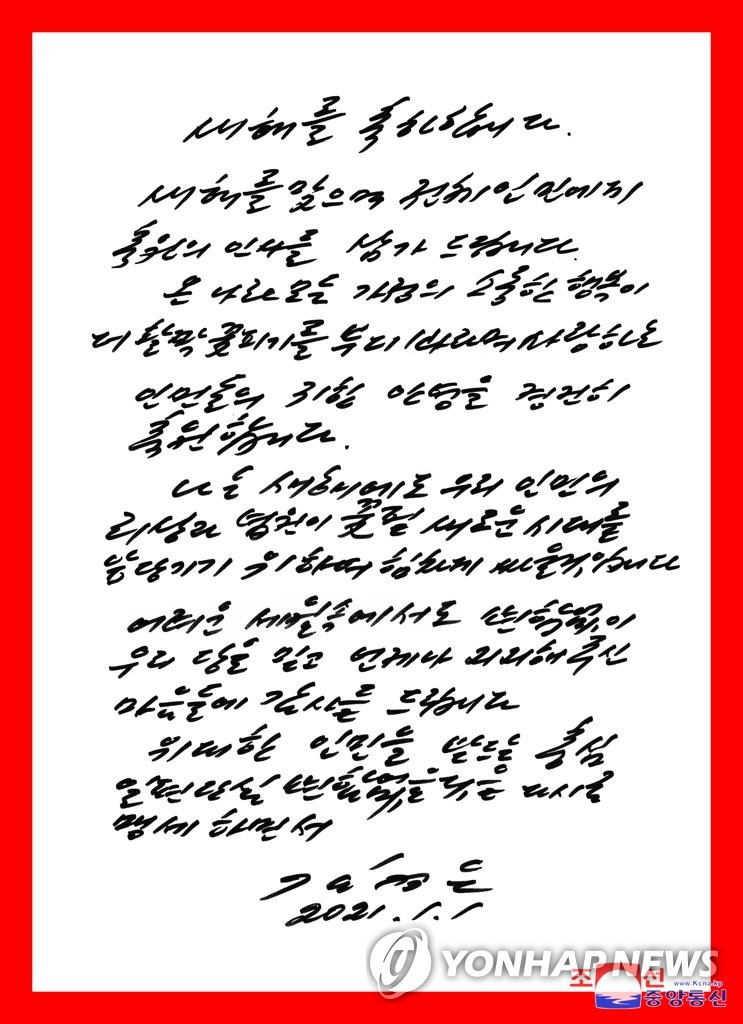 새해를 축하합니다.
새해를 맞으며 전체 인민에게
축원의 인사를 삼가 드립니다.
온 나라 모든 가정의 소중한 행복이
더 활짝 꽃피기를 부디 바라며 사랑하는
인민들의 귀한 안녕을 경건히
축원합니다.
나는 새해에도 우리 인민의
리상과 념원이 꽃필 새로운 시대를
앞당기기 위하여 힘차게 싸울것입니다
어려운 세월속에서도 변함없이
우리 당을 믿고 언제나 지지해주신
마음들에 감사를 드립니다
위대한 인민을 받드는 충심
일편단심 변함없을것을 다시금
맹세하면서
김정은
2021.1.1
YONHAP NEWS
조선
www.Kcna.kp
중앙통신